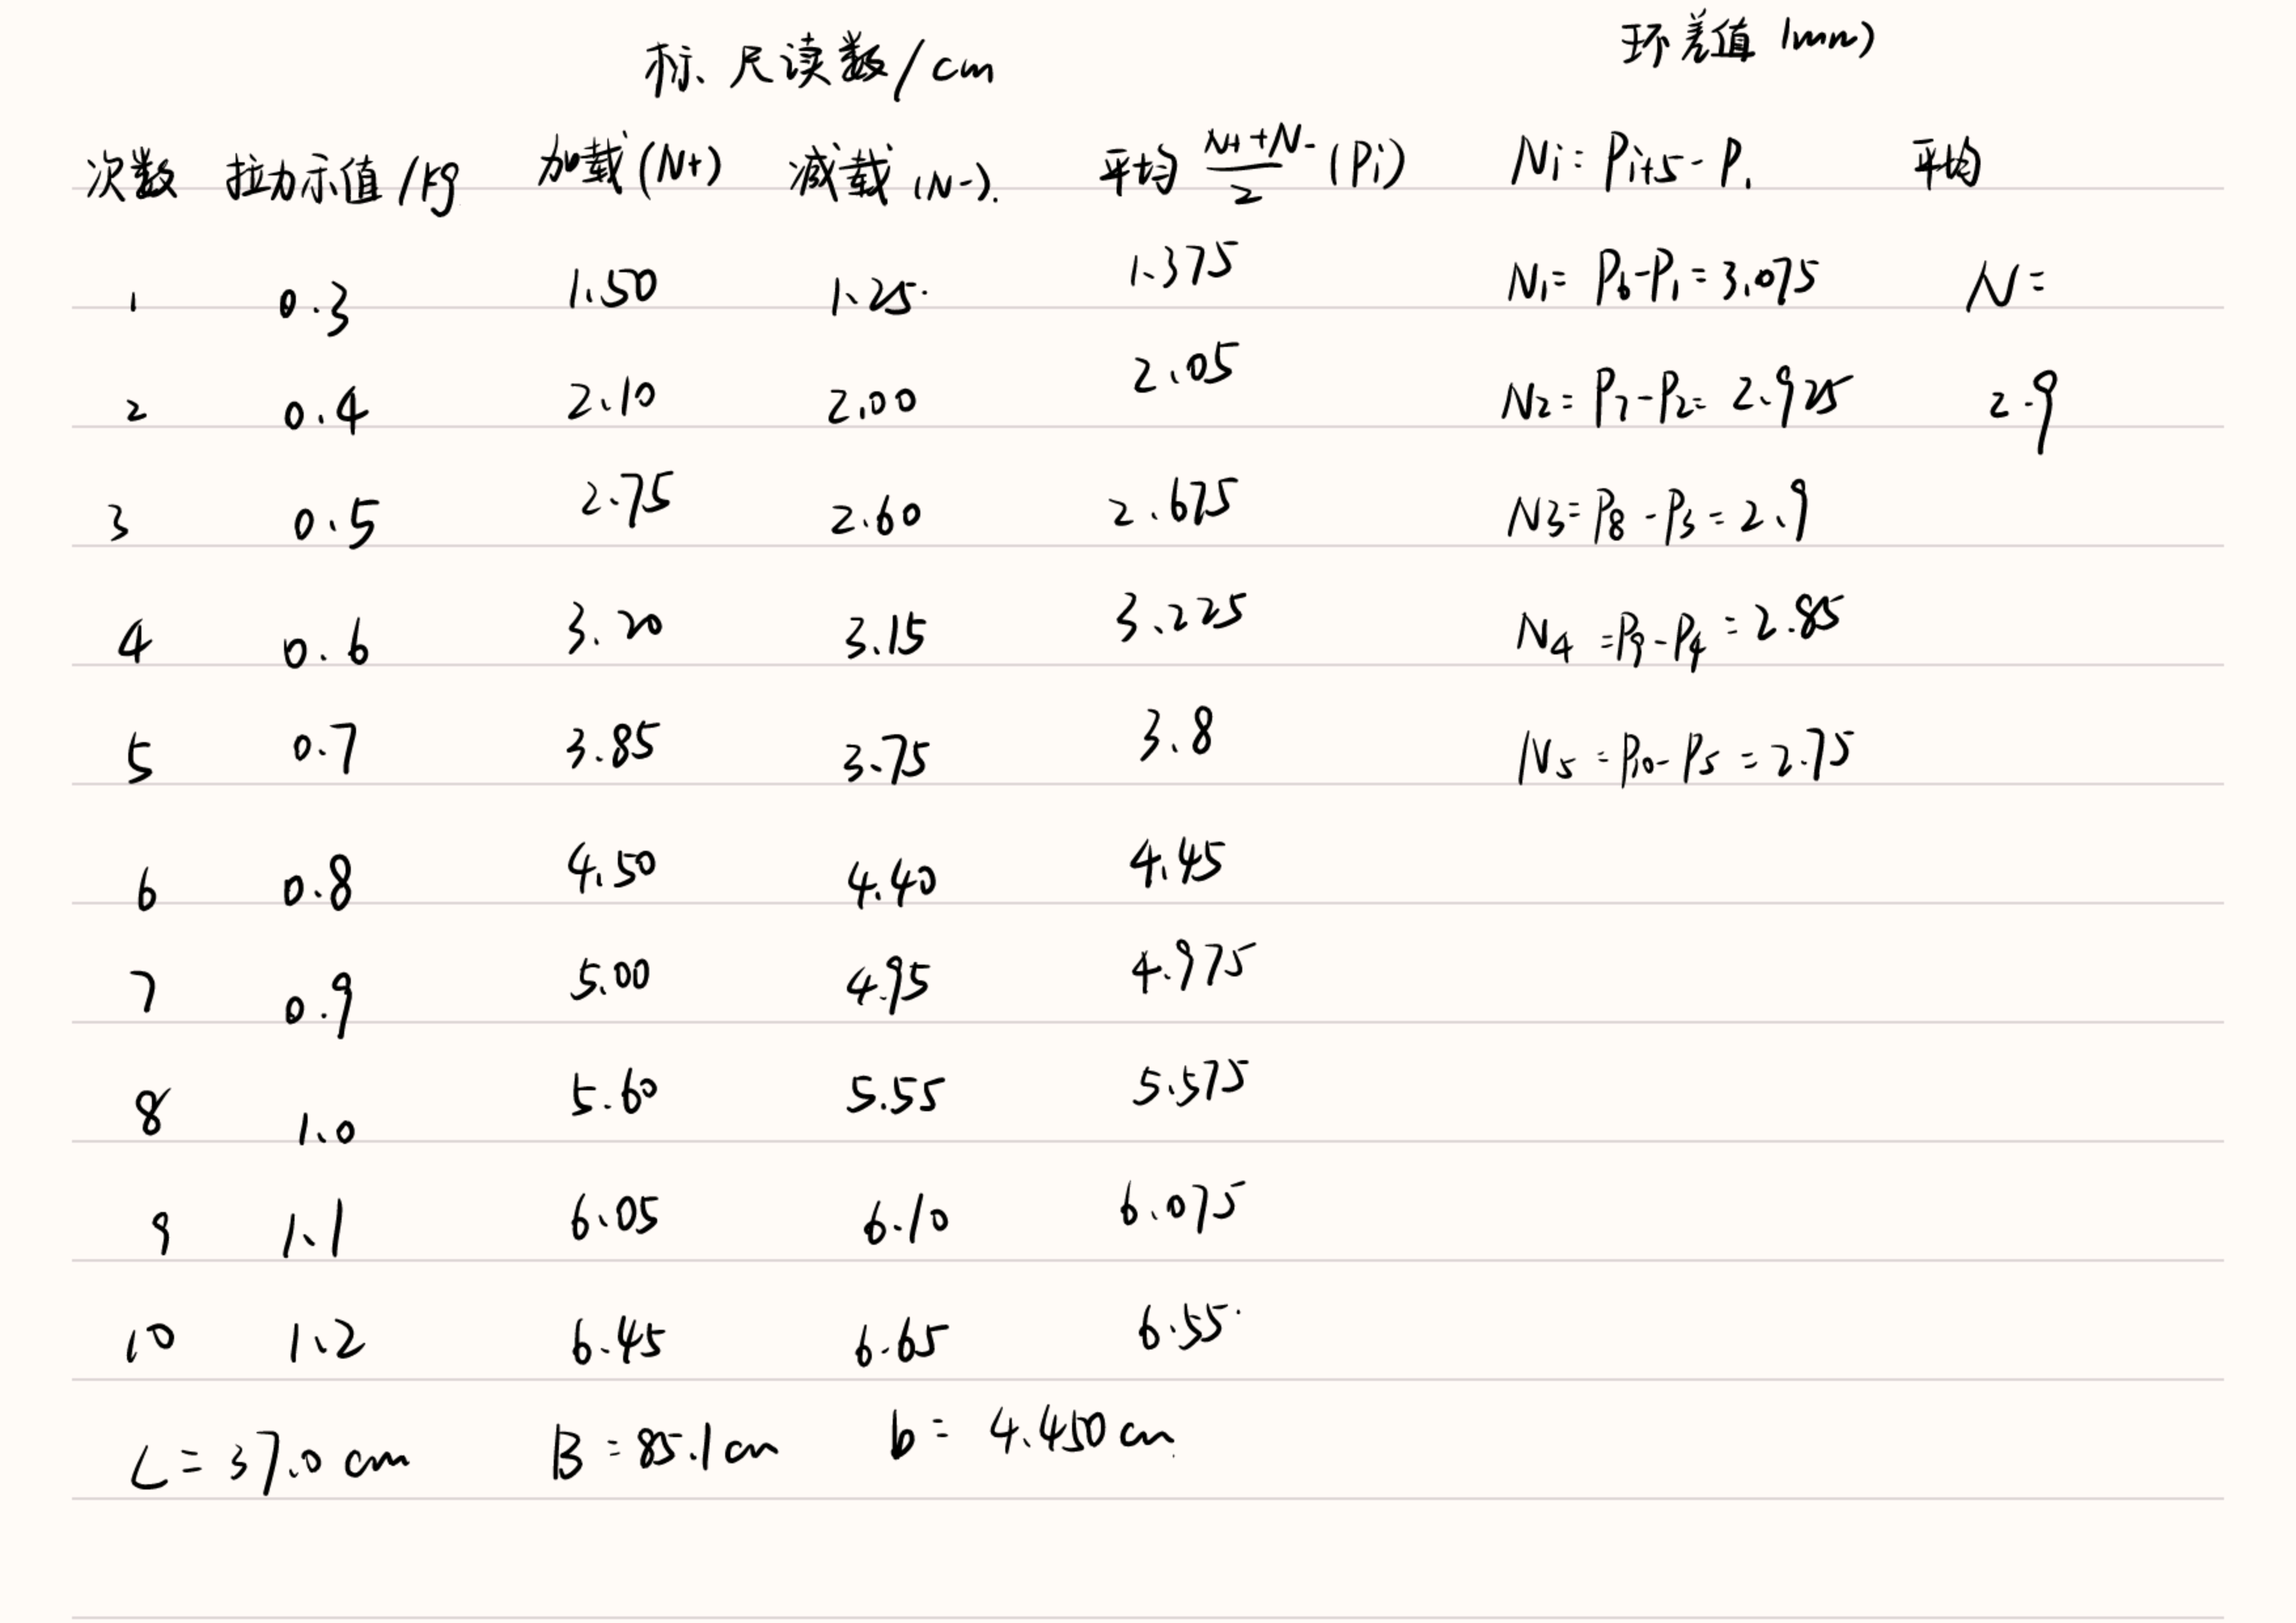 标尺读数/cm 环差值(mm)
次数 拉力示值/kg 加载(N+) 减载(N-). 平均 (N+ + N-)/2 (Pi) Ni= Pi+5 - P1 平均
1 0.3 1.50 1.25 1.375 N1= P6-P1=3.075 N=
2 0.4 2.10 2.00 2.05 N2=P7-P2=2.925 2.9
3 0.5 2.75 2.60 2.675 N3=P8-P3=2.9
4 0.6 3.20 3.15 3.225 N4=P9-P4=2.85
5 0.7 3.85 3.75 3.8 N5=P10-P5=2.75
6 0.8 4.50 4.40 4.45
7 0.9 5.00 4.95 4.975
8 1.0 5.60 5.55 5.575
9 1.1 6.05 6.10 6.075
10 1.2 6.45 6.65 6.55
L=37.0cm B=85.1cm b=4.450cm